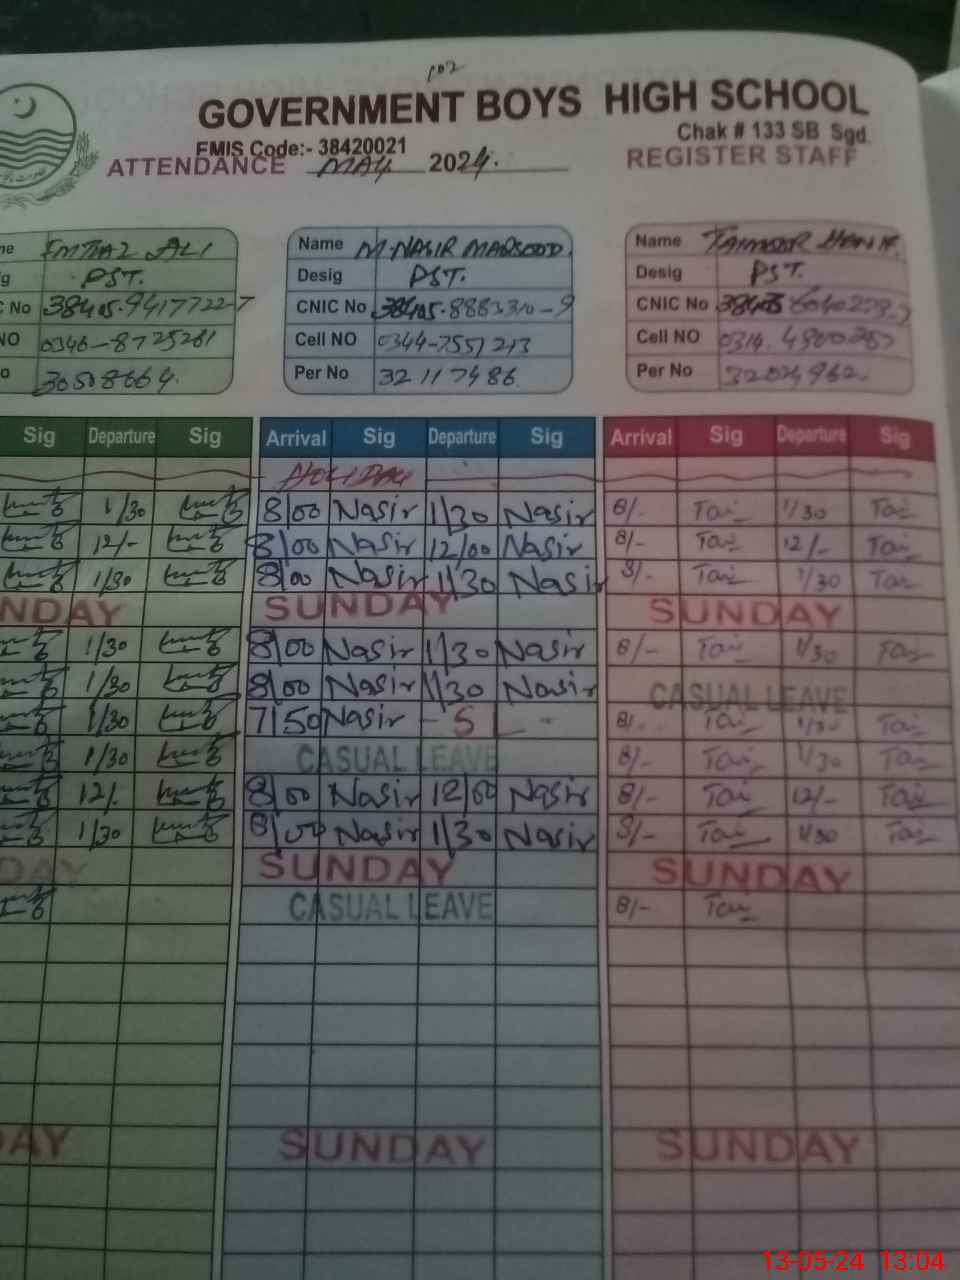 102
GOVERNMENT BOYS HIGH SCHOOL
FMIS Code:- 38420021 Chak # 133 SB Sgd.
ATTENDANCE MAY 2024. REGISTER STAFF
me IMTIAZ ALI Name M. NASIR MAQSOOD. Name TAIMOOR
g PST. Desig PST. Desig PST.
C No 38405-9417722-7 CNIC No 38405-8883310-9 CNIC No 38405
NO 0346-8725261 Cell NO 0344-7551213 Cell NO 0314.
o 30508664. Per No 32117486 Per No 32024962
Sig Departure Sig Arrival Sig Departure Sig Arrival Sig Departure Sig
HOLIDAY
1/30 8/00 Nasir 1/30 Nasir 8/- Tai 1/30 Tai
12/- 8/00 Nasir 12/00 Nasir 8/- Tai 12/- Tai
1/30 8/00 Nasir 1/30 Nasir 8/- Tai 1/30 Tai
NDAY SUNDAY SUNDAY
1/30 8/00 Nasir 1/30 Nasir 8/- Tai 1/30 Tai
1/30 8/00 Nasir 1/30 Nasir CASUAL LEAVE
1/30 7/50 Nasir - S L - 8/- Tai 1/30 Tai
1/30 CASUAL LEAVE 8/- Tai 1/30 Tai
12/- 8/00 Nasir 12/00 Nasir 8/- Tai 12/- Tai
1/30 8/00 Nasir 1/30 Nasir 8/- Tai 1/30 Tai
DAY SUNDAY SUNDAY
CASUAL LEAVE 8/- Tai
DAY SUNDAY SUNDAY
13-05-24 13:04